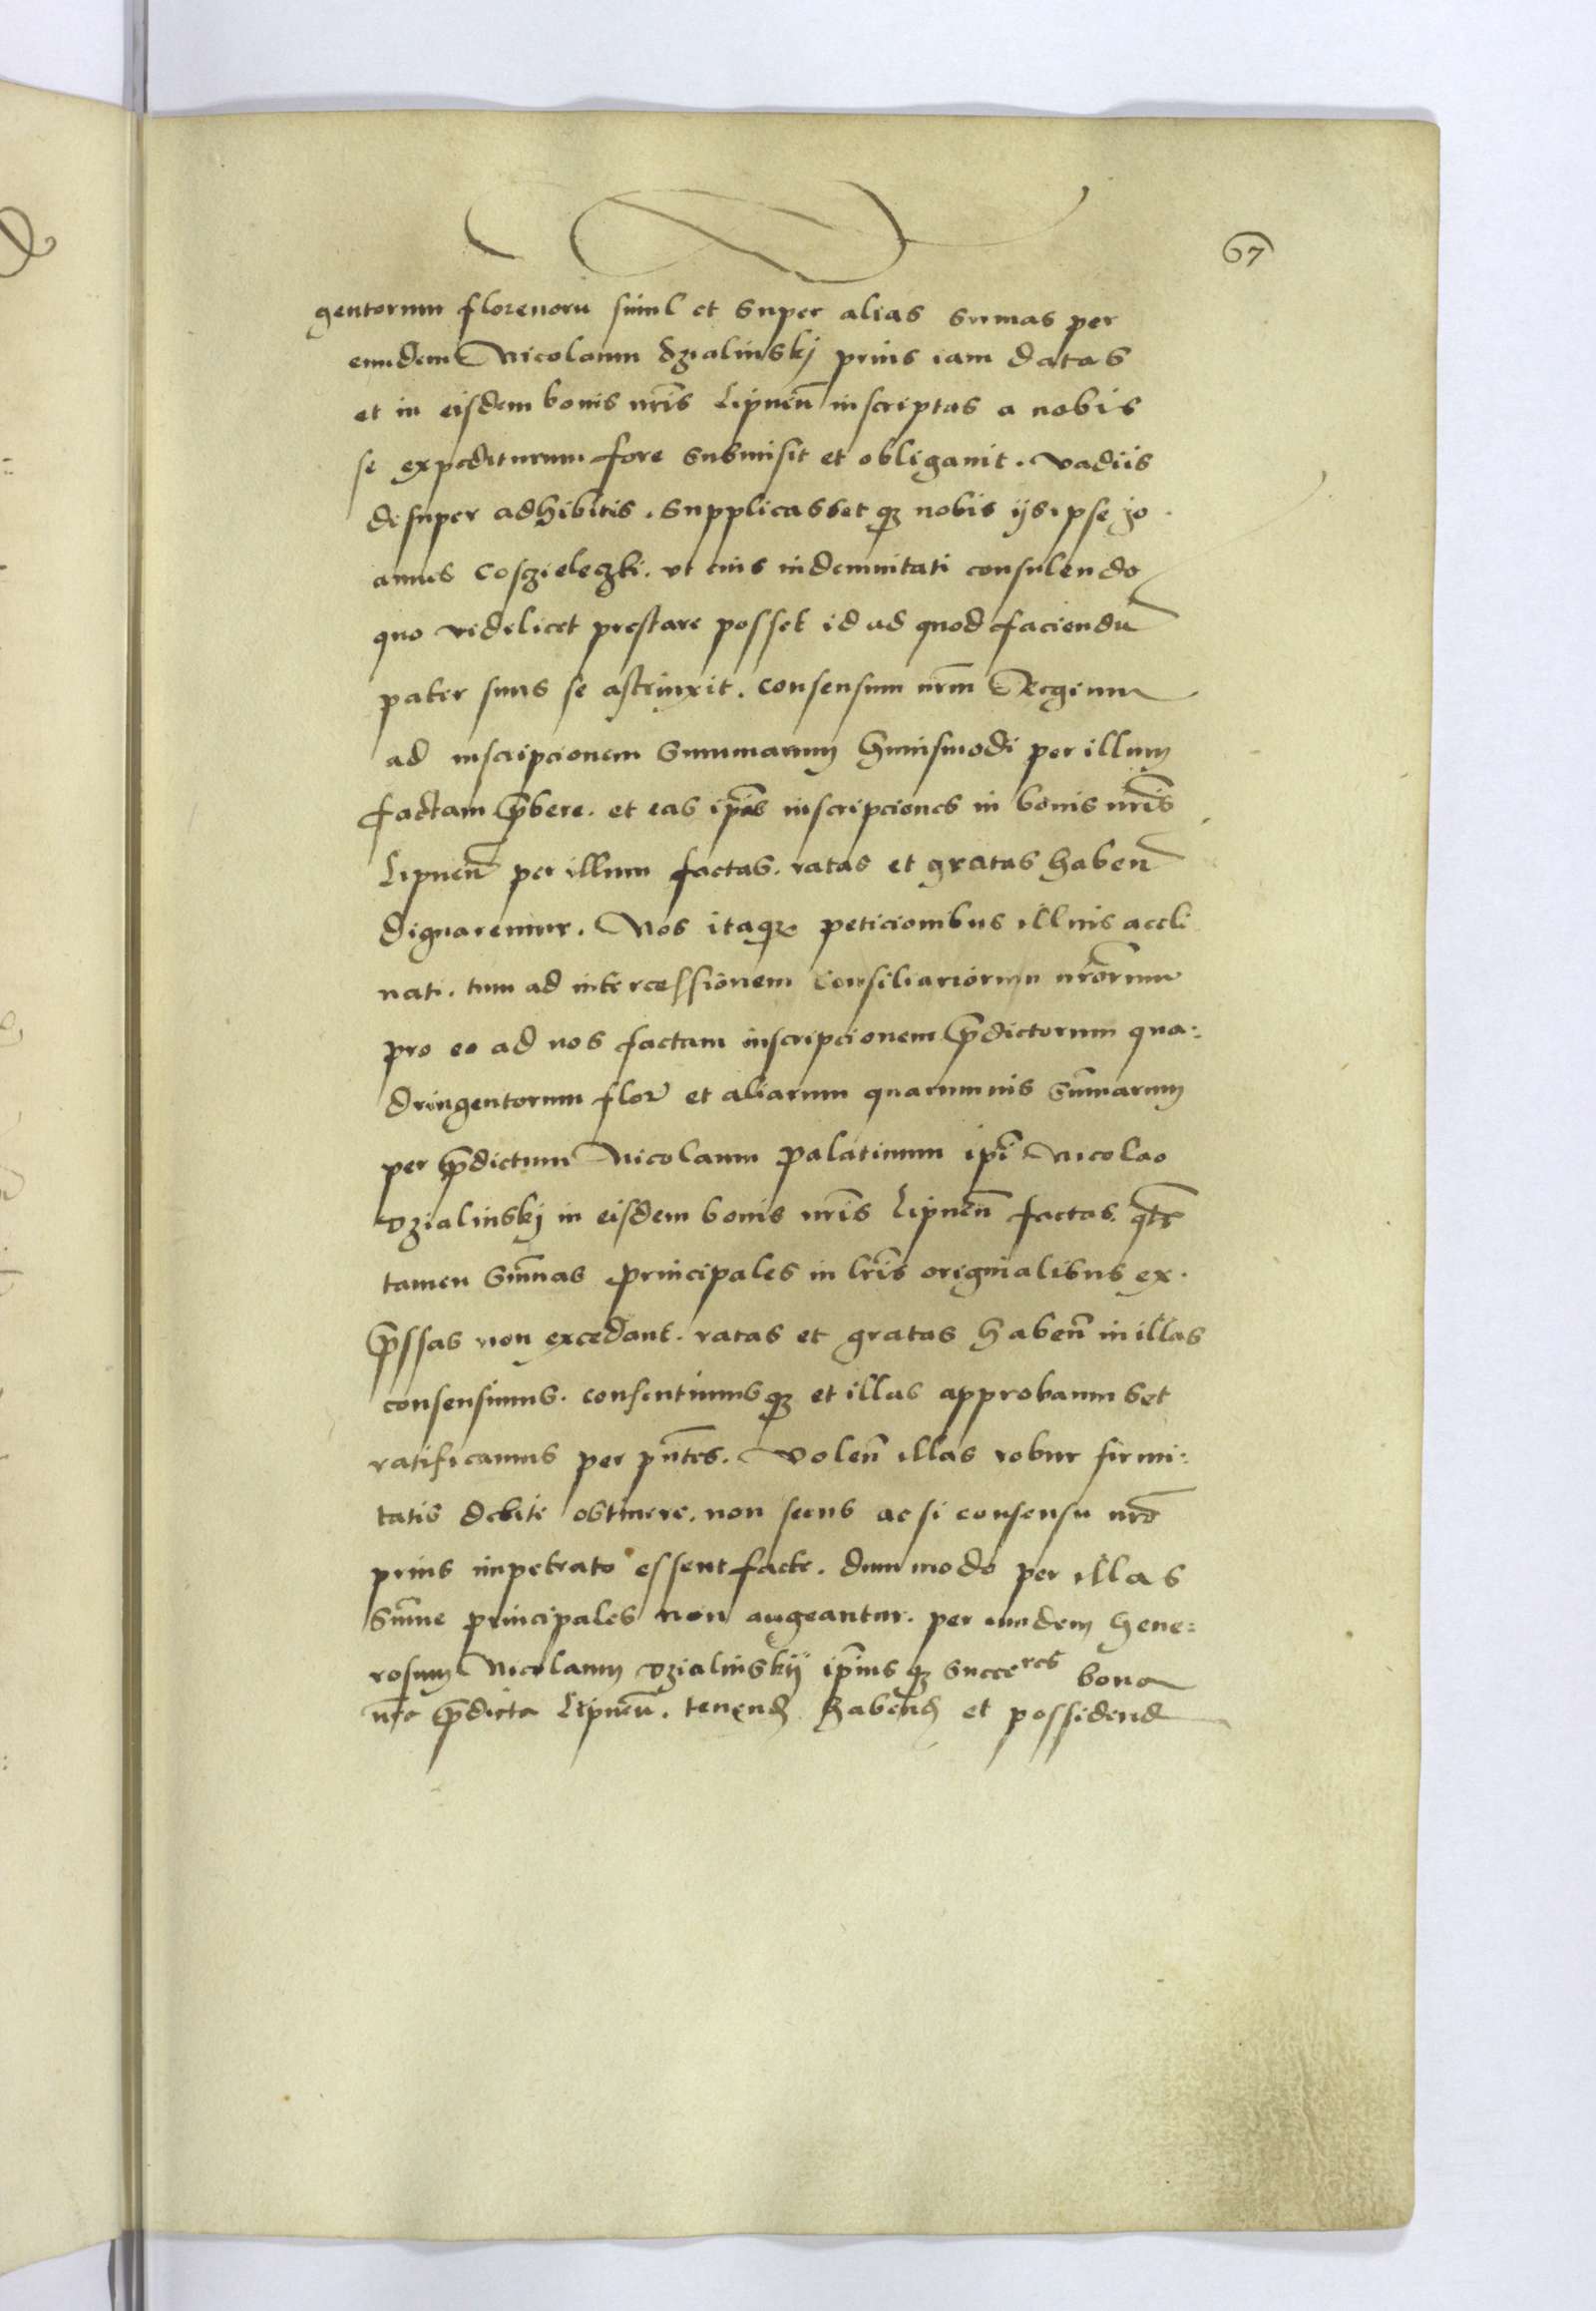 67
gentorum florenorũ simul et super alias sumas per
eundem Nicolaum dzialinskj prius iam datas
et in eisdem bonis nr̃is Lipneñ inscriptas a nobis
se expediturum fore submisit et obligauit. vadiis
desuper adhibitis. supplicassetqʒ nobis ijs ipse Jo
annes Cosczieleczki. vt eius indemnitati consulendo
quo videlicet prestare posset id ad quod faciendũ
pater suus se astrinxit. consensum nr̃m Regium
ad inscripcionem summarum huiusmodi per illum
factam p̃bere. et eas ip̃as inscripciones in bonis nr̃is
Lipneñ per illum factas. ratas et gratas habeñ
dignaremur. Nos itaqʒ peticionibus illius accli
nati. tum ad intercessionem consiliariorum nr̃orum
pro eo ad nos factam inscripcionem p̃dictorum qua:
dringentorum flor̃ et aliarum quarumuis sum̃arum
per p̃dictum Nicolaum palatinum ip̃i Nicolao
dzialinskj in eisdem bonis nr̃is Lipneñ factas. q̃te
tamen sum̃as principales in lr̃is originalibus ex.
p̃ssas non excedant. ratas et gratas habeñ in illas
consensimus. consentimusqʒ et illas approbamus et
ratificamus per pñtes. voleñ illas robur firmi:
tatis debite obtinere. non secus ac si consensu nr̃o
prius impetrato essent facte. dummodo per illas
sum̃e principales non augeantur. per eundem Gene:
rosum Nicolaum dzialinskij ip̃iusqʒ succeres bona
nr̃a p̃dicta Lipneñ. tenend habend et possidend